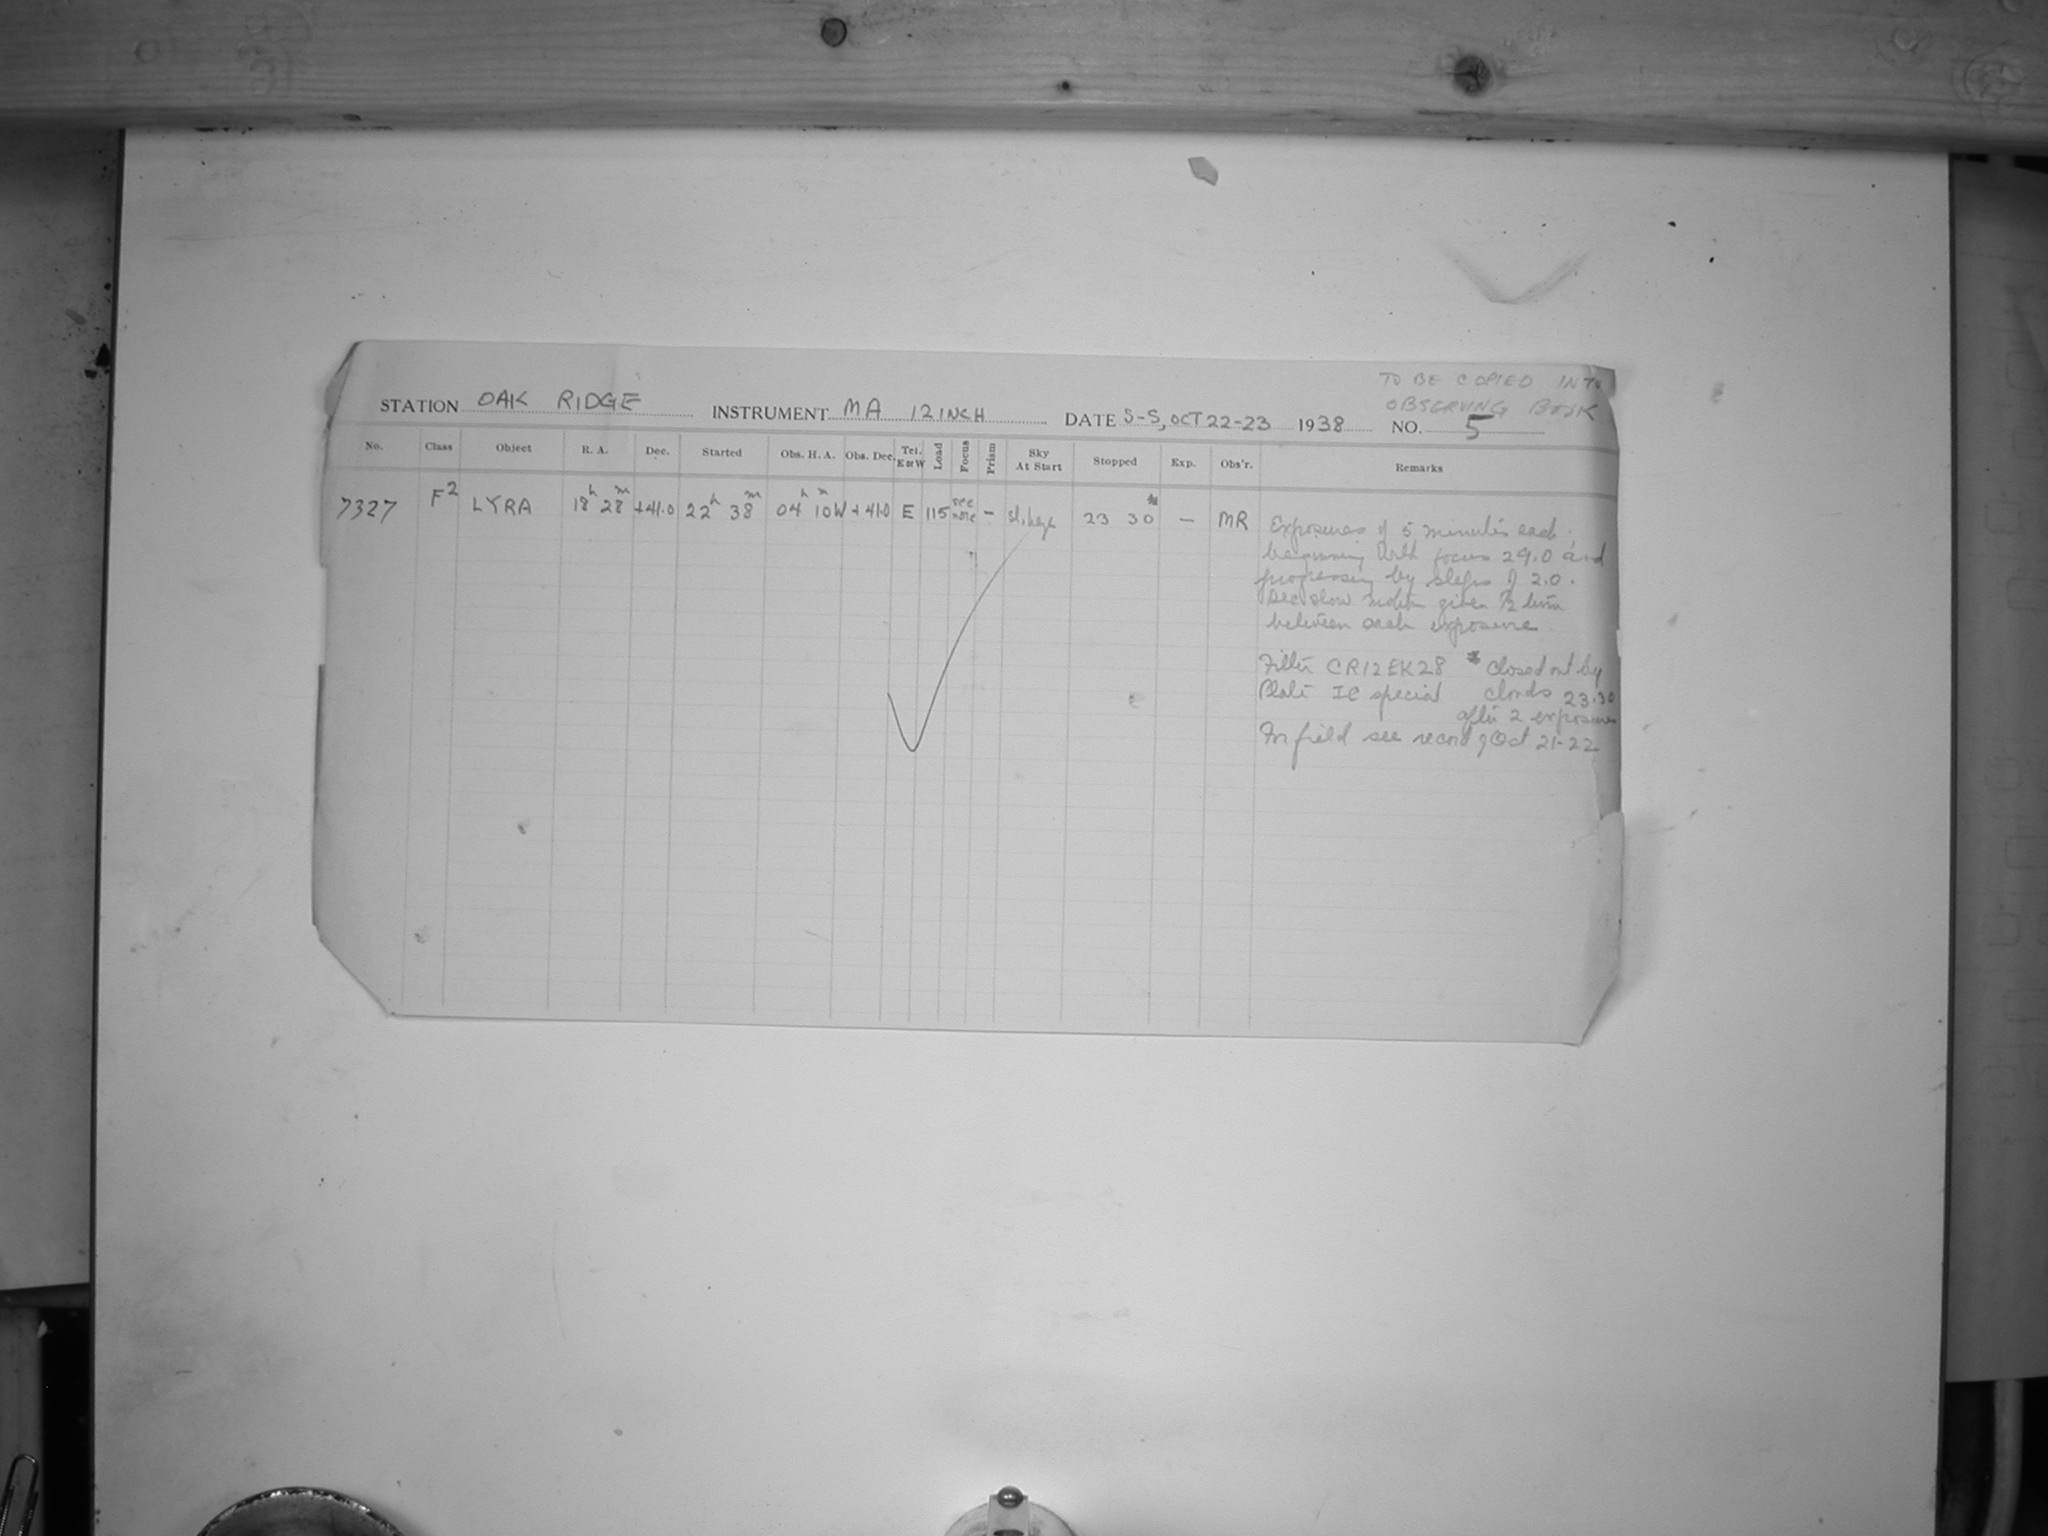 TO BE COPIED INTO
OBSERVING BOOK
STATION OAK RIDGE INSTRUMENT MA 12 INCH DATE S-S, OCT 22-23 1938 NO. 5
No. Class Object R. A. Dec. Started Obs. H. A. Obs. Dec. Tel. E or W Load Focus Prism Sky At Start Stopped Exp. Obs'r. Remarks
7327 F2 LYRA 18h 28m +41.0 22h 38m 04h 10W +41.0 E 115 see note - sl. haze 23 30* — MR
Exposures of 5 minutes each,
beginning with focus 29.0 and
progressing by steps of 2.0.
Dec. slow motion given ½ turn
between each exposure
Filter CR12EK28 * closed out by
Plate IC special clouds 23.30
after 2 exposures
For field see record of Oct 21-22